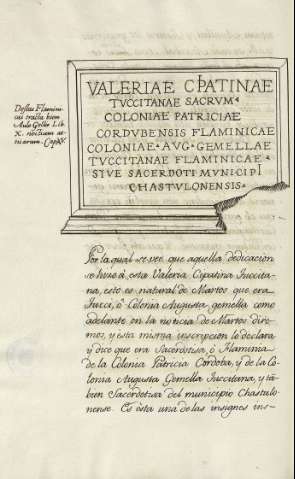 Destas Flamini-
cas trata bien
Aulo Gelio Lib.
X. noctium at-
ticarum. Cap. XV.
VALERIAE CPATINAE
TUCCITANAE SACRUM·
COLONIAE PATRICIAE
CORDUBENSIS FLAMINICAE
COLONIAE·AUG·GEMELLAE
TUCCITANAE FLAMINICAE·
SIVE SACERDOTI MUNICIPI
CHASTULONENSIS·
Por la qual se vee que aquella dedicacion
se hizo à esta Valeria Cipatina Tuccita-
na, esto es natural de Martos que era
Tucci, ò Colonia Augusta gemella como
adelante en la noticia de Martos dire-
mos, y esta misma inscripcion lo declara
y dice que era Sacerdotisa, ò Flaminia
de la Colonia Patricia Cordoba, y de la Co-
lonia Augusta Gemella Tuccitana, y tā-
bien Sacerdotisa del municipio Chastulo-
nense. Es esta una de las insignes ins-